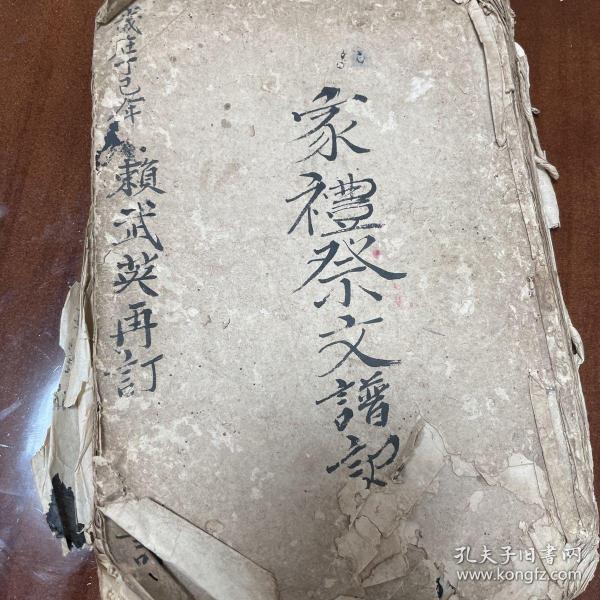 家禮祭文譜記
歲在丁巳年
賴武英再訂
孔夫子旧书网
www.kongfz.com